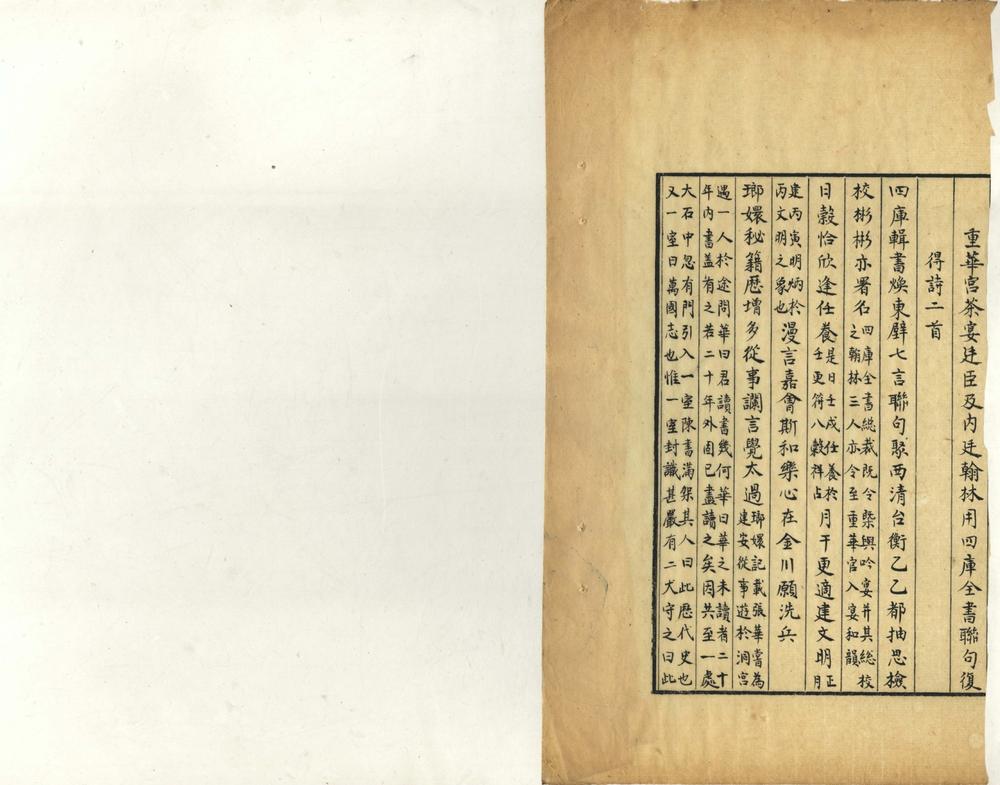 重華宮茶宴廷臣及內廷翰林用四庫全書聯句復
得詩二首
四庫輯書煥東壁七言聯句聚西清台衡乙乙都抽思檢
校彬彬亦署名四庫全書總裁既令槩與吟宴并其總校
之翰林三人亦令至重華宮入宴和韻
日穀恰欣逢任養是日壬戌任養於
壬更符八穀祥占月干更適建文明正
月
建丙寅明炳於
丙文明之象也漫言嘉會斯和樂心在金川願洗兵
瑯嬛秘籍歷增多從事讕言覺太過瑯嬛記載張華嘗為
建安從事遊於洞宮
遇一人於途問華曰君讀書幾何華曰華之未讀者二十
年內書盖有之若二十年外固已盡讀之矣因共至一處
大石中忽有門引入一室陳書滿架其人曰此歷代史也
又一室曰萬國志也惟一室封識甚嚴有二犬守之曰此